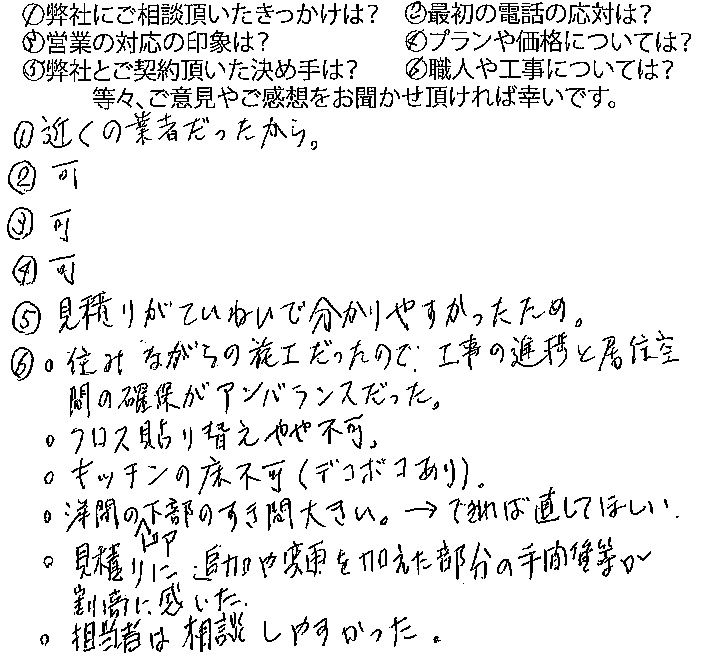 ①弊社にご相談頂いたきっかけは？ ②最初の電話の応対は？
③営業の対応の印象は？ ④プランや価格については？
⑤弊社とご契約頂いた決め手は？ ⑥職人や工事については？
等々、ご意見やご感想をお聞かせ頂ければ幸いです。
①近くの業者だったから。
②可
③可
④可
⑤見積りがていねいで分かりやすかったため。
⑥。住みながらの施工だったので、工事の進捗と居住空
間の確保がアンバランスだった。
。クロス貼り替えやや不可。
。キッチンの床不可(デコボコあり)。
。洋間の下部のすき間大きい。→できれば直してほしい。
ドア
。見積りに追加や変更を加えた部分の手間賃等が
割高に感じた。
。担当者は相談しやすかった。